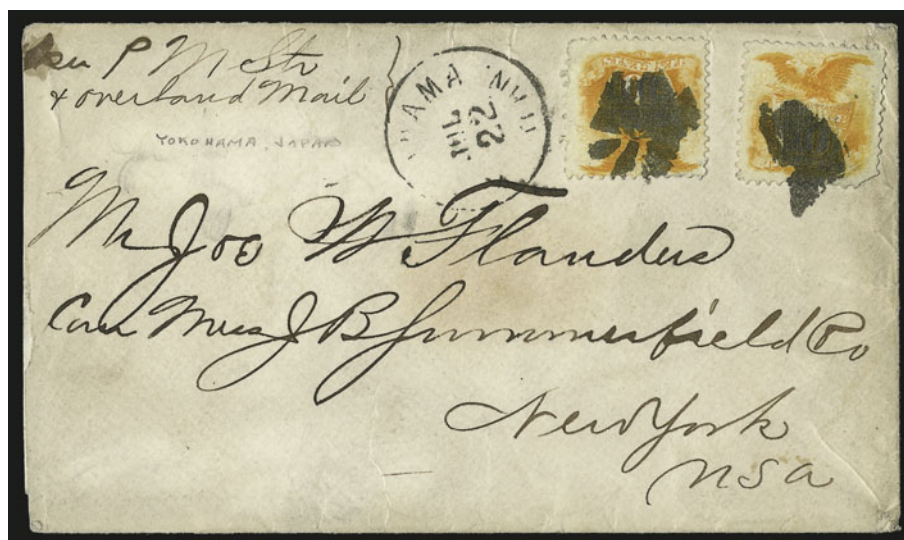 per P M Str
& overland Mail
YOKOHAMA, JAPAN
HAMA
JUL
22
Mr Jos W Flanders
Care Mess J B Summerfield Co
New York
USA